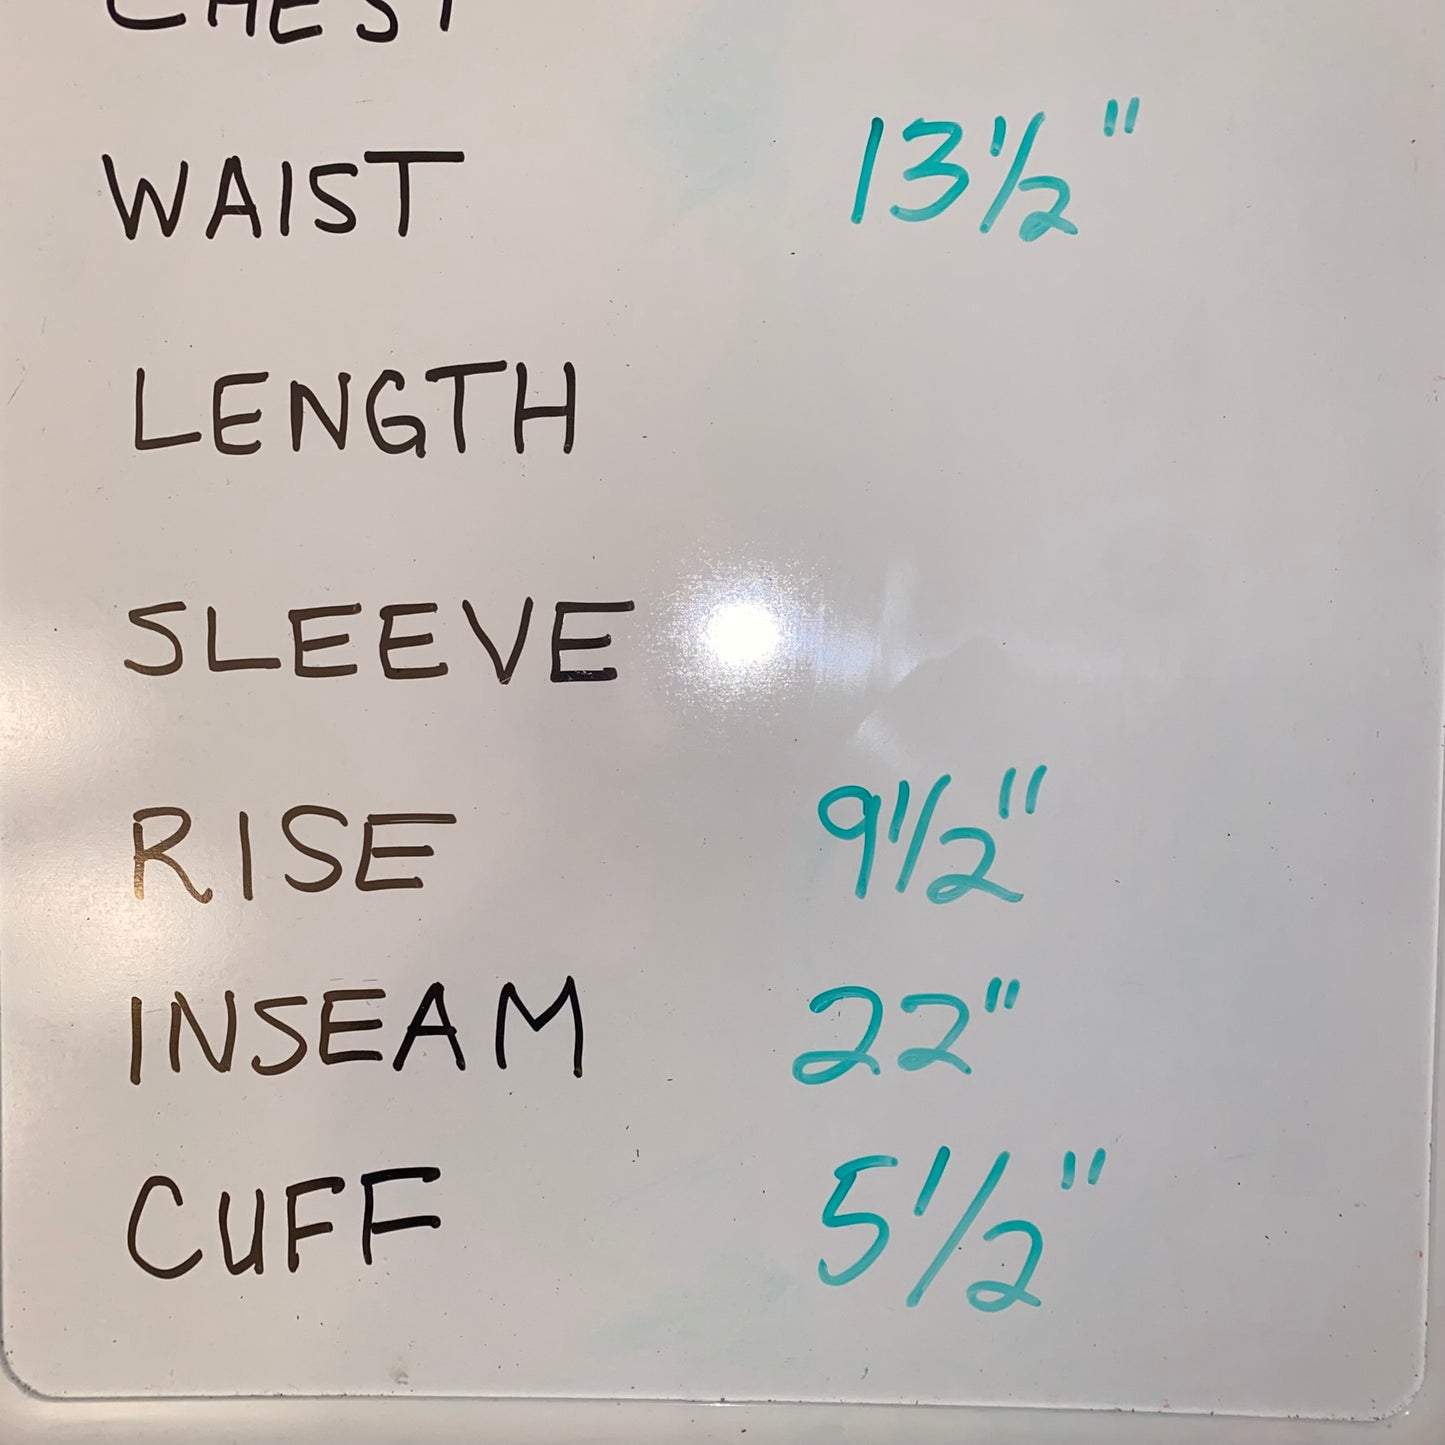 CHEST
WAIST 13 1/2"
LENGTH
SLEEVE
RISE 9 1/2"
INSEAM 22"
CUFF 5 1/2"